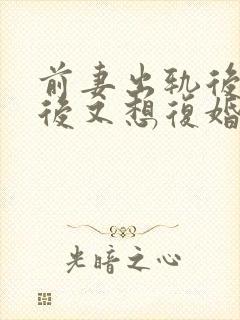 前妻出軌後
後又想復婚
光暗之心